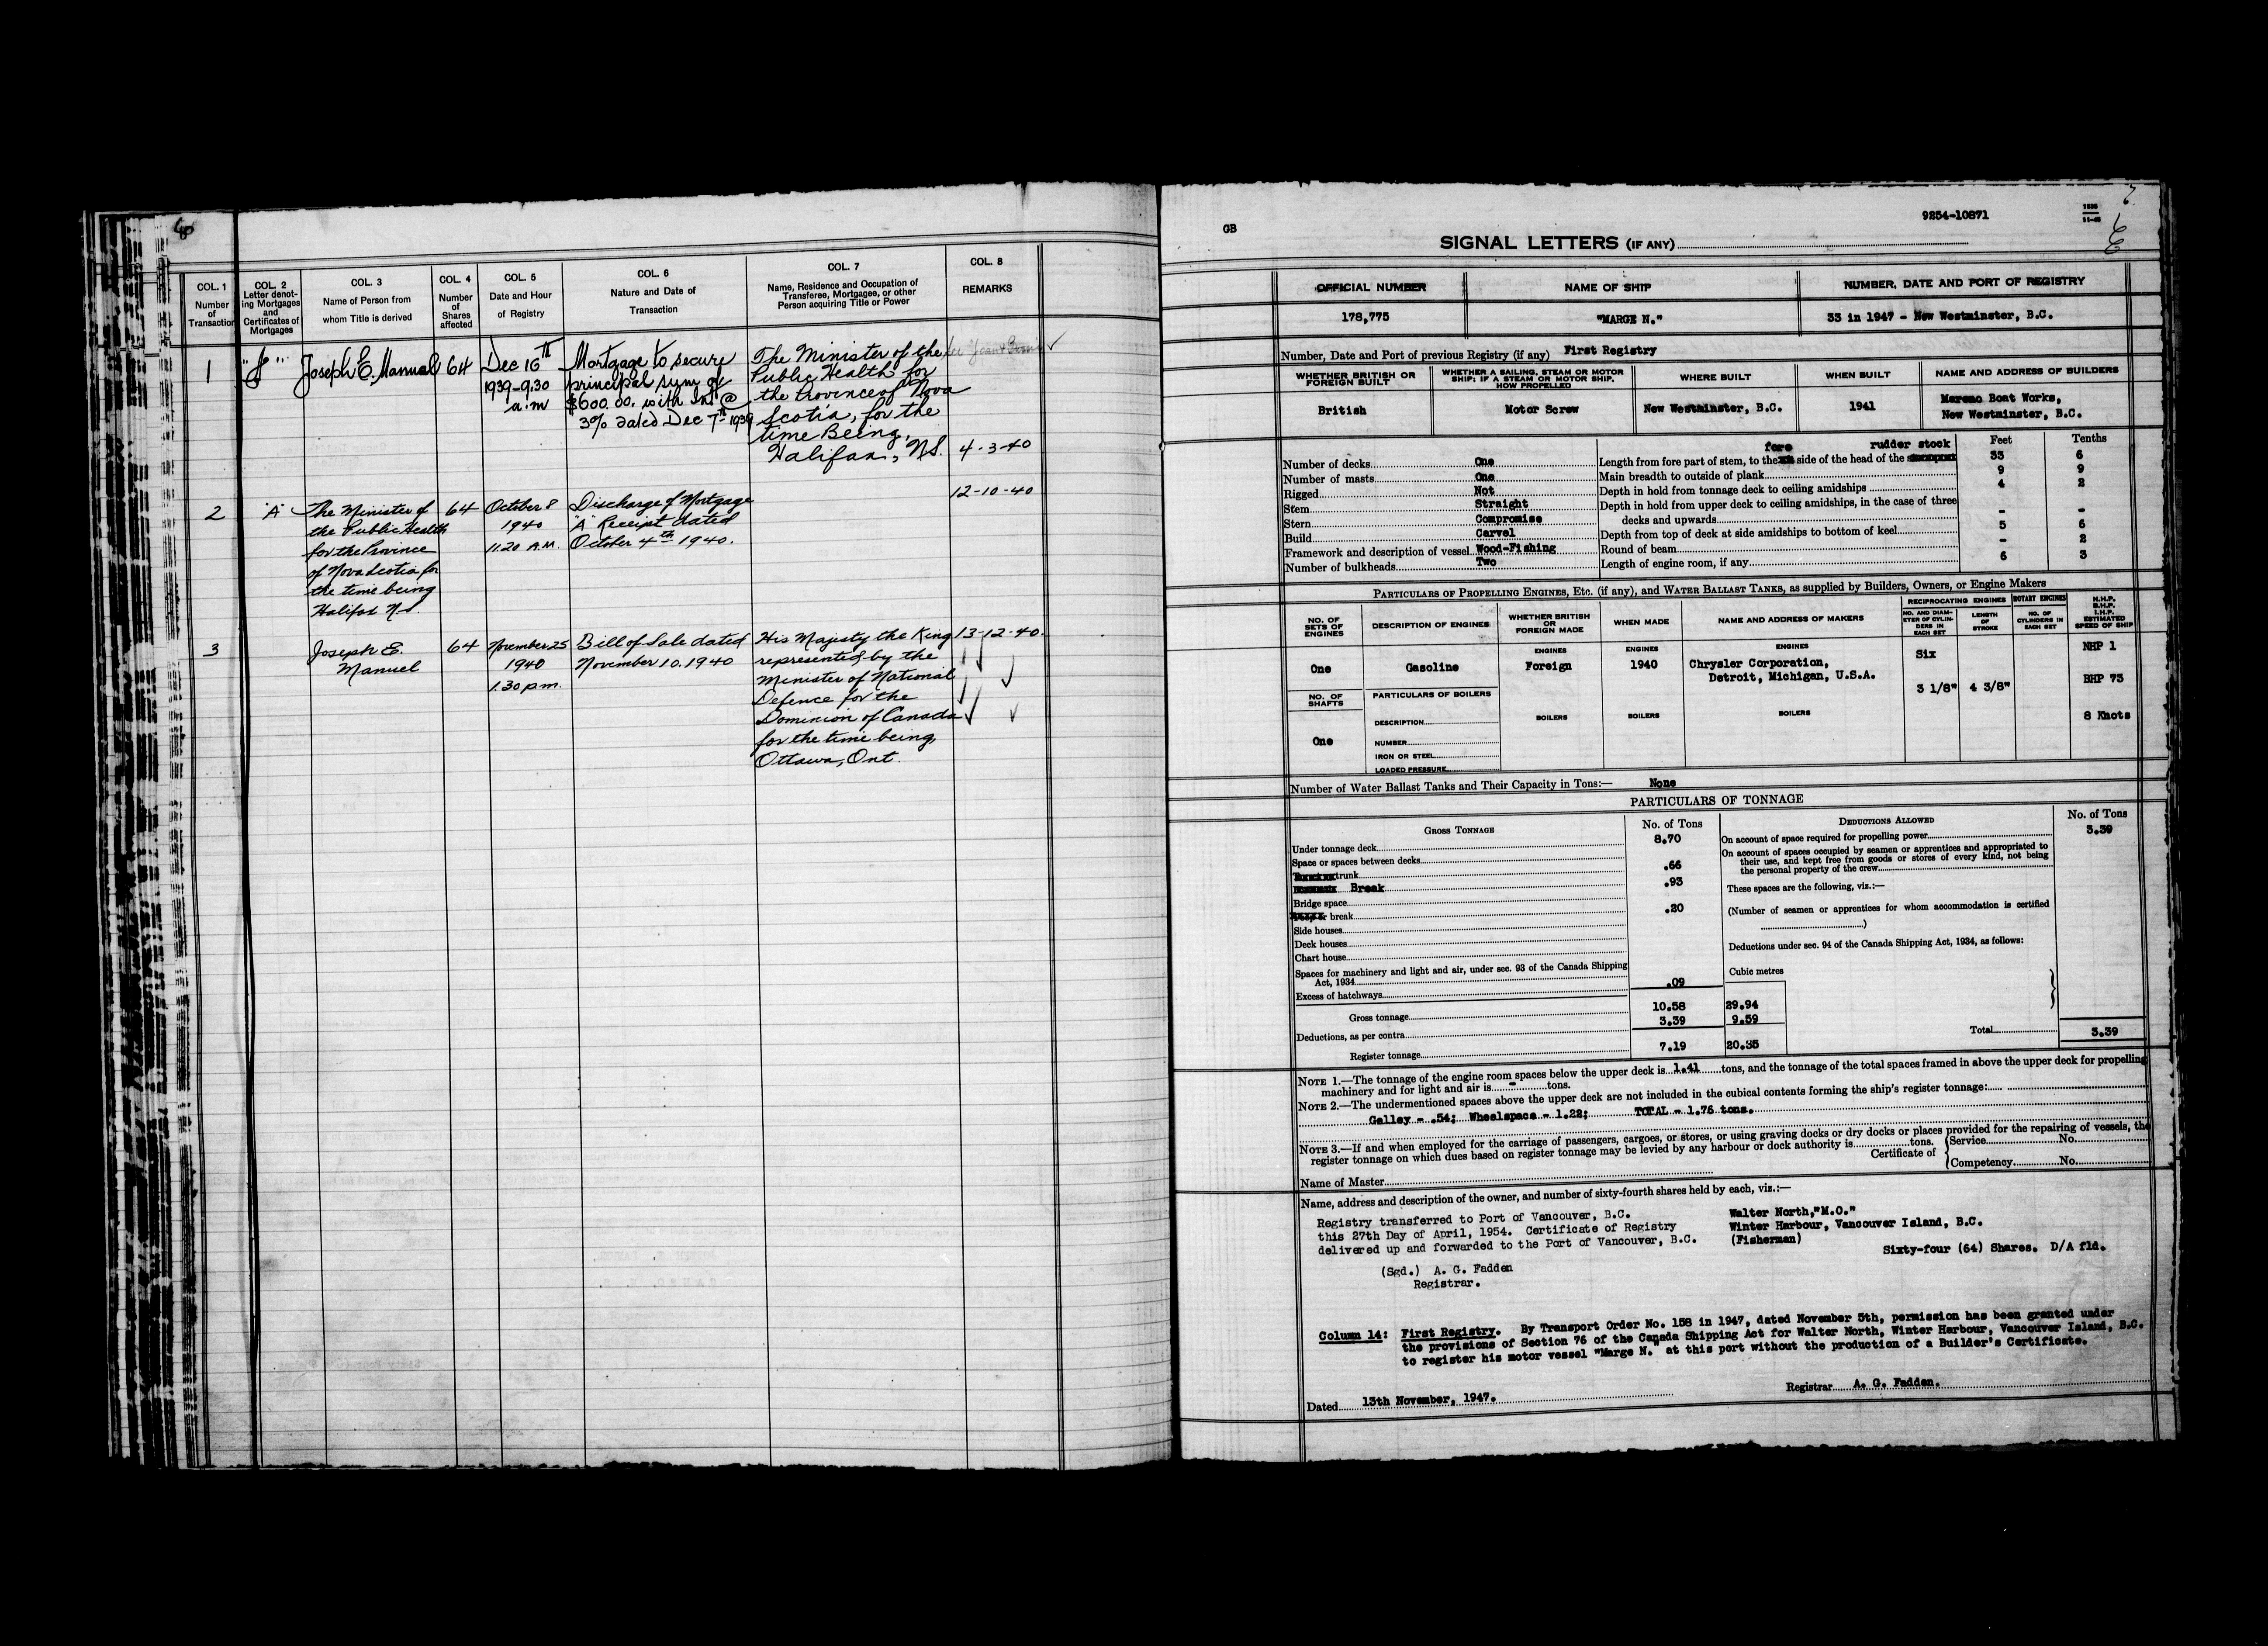 COL. 1
Number
of
Transaction
COL. 2
Letter denot-
ing Mortgages
and
Certificates of
Mortgages
COL. 3
Name of Person from
whom Title is derived
COL. 4
Number
of
Shares
affected
COL. 5
Date and Hour
of Registry
COL. 6
Nature and Date of
Transaction
COL. 7
Name, Residence and Occupation of
Transferee, Mortgagee, or other
Person acquiring Title or Power
COL. 8
REMARKS
1
Joseph E. Manuel
64
Dec 16th
1939-9.30
a.m
Mortgage to secure
principal sum of
$600.00. with Int @
3% dated Dec 7th 1939
The Minister of the
Public Health for
the Province of Nova
Scotia, for the
time Being,
Halifax, N.S.
4-3-40
2
"A"
The Minister of
the Public Health
for the Province
of Nova Scotia for
the time being
Halifax N.S
64
October 8
1940
11.20 A.M.
Discharge of Mortgage
"A" Receipt dated
October 4th 1940.
12-10-40
3
Joseph E.
Manuel
64
November 25
1940
1.30 p.m.
Bill of Sale dated
November 10. 1940
His Majesty the King
represented by the
Minister of National
Defence for the
Dominion of Canada
for the time being,
Ottawa, Ont.
13-12-40.
GB
9254-10871
SIGNAL LETTERS (IF ANY)
OFFICIAL NUMBER
NAME OF SHIP
NUMBER, DATE AND PORT OF REGISTRY
178,775
"MARGE N."
33 in 1947 - New Westminster, B.C.
Number, Date and Port of previous Registry (if any) First Registry
WHETHER BRITISH OR
FOREIGN BUILT
WHETHER A SAILING, STEAM OR MOTOR
SHIP; IF A STEAM OR MOTOR SHIP,
HOW PROPELLED
WHERE BUILT
WHEN BUILT
NAME AND ADDRESS OF BUILDERS
British
Motor Screw
New Westminster, B.C.
1941
Mareno Boat Works,
New Westminster, B.C.
Number of decks One
Number of masts One
Rigged Not
Stem Straight
Stern Compromise
Build Carvel
Framework and description of vessel Wood-Fishing
Number of bulkheads Two
Feet Tenths
fore rudder stock
Length from fore part of stem, to the side of the head of the 33 6
Main breadth to outside of plank 9 9
Depth in hold from tonnage deck to ceiling amidships 4 2
Depth in hold from upper deck to ceiling amidships, in the case of three
decks and upwards - -
Depth from top of deck at side amidships to bottom of keel 5 6
Round of beam - 2
Length of engine room, if any 6 3
PARTICULARS OF PROPELLING ENGINES, ETC. (if any), and WATER BALLAST TANKS, as supplied by Builders, Owners, or Engine Makers
NO. OF
SETS OF
ENGINES
DESCRIPTION OF ENGINES
WHETHER BRITISH
OR
FOREIGN MADE
WHEN MADE
NAME AND ADDRESS OF MAKERS
RECIPROCATING ENGINES
NO. AND DIAM-
ETER OF CYLIN-
DERS IN
EACH SET
LENGTH
OF
STROKE
ROTARY ENGINES
NO. OF
CYLINDERS IN
EACH SET
N.H.P.
B.H.P.
I.H.P.
ESTIMATED
SPEED OF SHIP
ENGINES ENGINES ENGINES
One
Gasoline
Foreign
1940
Chrysler Corporation,
Detroit, Michigan, U.S.A.
Six
3 1/8" 4 3/8"
NHP 1
BHP 73
8 Knots
NO. OF
SHAFTS
One
PARTICULARS OF BOILERS
DESCRIPTION
NUMBER
IRON OR STEEL
LOADED PRESSURE
BOILERS BOILERS BOILERS
Number of Water Ballast Tanks and Their Capacity in Tons:— None
PARTICULARS OF TONNAGE
GROSS TONNAGE
No. of Tons
Under tonnage deck 8.70
Space or spaces between decks
trunk .66
Break .93
Bridge space
break .20
Side houses
Deck houses
Chart house
Spaces for machinery and light and air, under sec. 93 of the Canada Shipping
Act, 1934
Excess of hatchways .09
Cubic metres
Gross tonnage 10.58 29.94
Deductions, as per contra 3.39 9.59
Register tonnage 7.19 20.35
DEDUCTIONS ALLOWED
No. of Tons
On account of space required for propelling power 3.39
On account of spaces occupied by seamen or apprentices and appropriated to
their use, and kept free from goods or stores of every kind, not being
the personal property of the crew
These spaces are the following, viz.:—
(Number of seamen or apprentices for whom accommodation is certified
)
Deductions under sec. 94 of the Canada Shipping Act, 1934, as follows:
Total 3.39
NOTE 1.—The tonnage of the engine room spaces below the upper deck is 1.41 tons, and the tonnage of the total spaces framed in above the upper deck for propelling
machinery and for light and air is - tons.
NOTE 2.—The undermentioned spaces above the upper deck are not included in the cubical contents forming the ship's register tonnage:
Galley - .54; Wheelspace - 1.22; TOTAL - 1.76 tons.
NOTE 3.—If and when employed for the carriage of passengers, cargoes, or stores, or using graving docks or dry docks or places provided for the repairing of vessels, the
register tonnage on which dues based on register tonnage may be levied by any harbour or dock authority is tons.
Certificate of
Service No.
Competency No.
Name of Master
Name, address and description of the owner, and number of sixty-fourth shares held by each, viz.:—
Registry transferred to Port of Vancouver, B.C.
this 27th Day of April, 1954. Certificate of Registry
delivered up and forwarded to the Port of Vancouver, B.C.
(Sgd.) A. G. Fadden
Registrar.
Walter North,"M.O."
Winter Harbour, Vancouver Island, B.C.
(Fisherman)
Sixty-four (64) Shares. D/A fld.
Column 14: First Registry. By Transport Order No. 158 in 1947, dated November 5th, permission has been granted under
the provisions of Section 76 of the Canada Shipping Act for Walter North, Winter Harbour, Vancouver Island, B.C.
to register his motor vessel "Marge N." at this port without the production of a Builder's Certificate.
Dated 13th November, 1947.
Registrar A. G. Fadden.